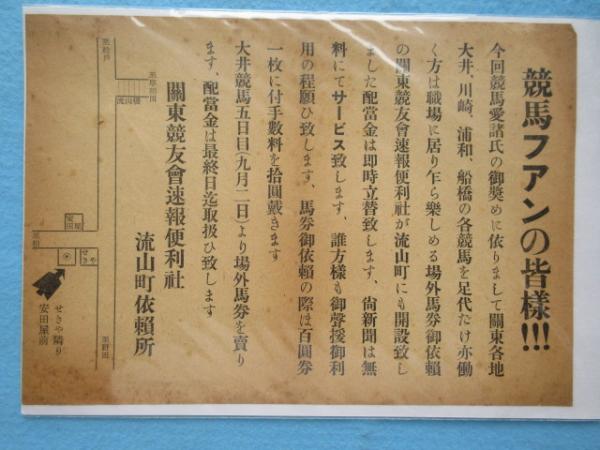 競馬フアンの皆様!!!
今回競馬愛諸氏の御奬めに依りまして關東各地
大井、川崎、浦和、船橋の各競馬を足代だけ亦働
く方は職場に居り乍ら樂しめる場外馬券御依賴
の關東競友會速報便利社が流山町にも開設致し
ました配當金は即時立替致します、尙新聞は無
料にてサービス致します、誰方様も御聲援御利
用の程願ひ致します、馬券御依賴の際は百圓券
一枚に付手數料を拾圓戴きます
大井競馬五日目(九月二日)より場外馬券を賣り
ます、配當金は最終日迄取扱ひ致します
關東競友會速報便利社
流山町依賴所
至松戸
流山橋
安田屋
せきや
至野田
せきや隣り
安田屋前